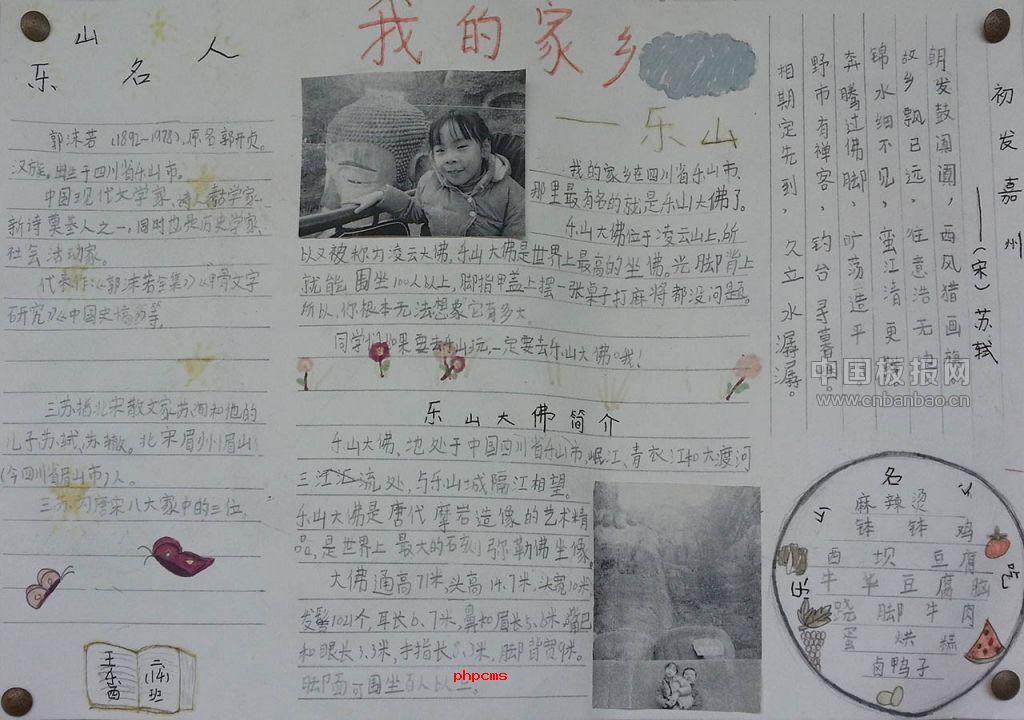 我的家乡
——乐山
乐山名人
郭沫若(1892~1978),原名郭开贞。
汉族。出生于四川省乐山市。
中国现代文学家、诗人、剧学家、
新诗奠基人之一,同时也是历史学家、
社会活动家。
代表作:《郭沫若全集》《甲骨文字
研究》《中国史稿》等。
三苏指北宋散文家苏洵和他的
儿子苏轼、苏辙。北宋眉州眉山
(今四川省眉山市)人。
三苏为唐宋八大家中的三位。
王东西
二(14)班
我的家乡在四川省乐山市、
那里最有名的就是乐山大佛了。
乐山大佛位于凌云山上,所
以又被称为凌云大佛。乐山大佛是世界上最高的坐佛。光脚背上
就能围坐100人以上,脚指甲盖上摆一张桌子打麻将都没问题。
所以,你根本无法想象它有多大。
同学们如果要去乐山玩,一定要去乐山大佛哦!
乐山大佛简介
乐山大佛、地处于中国四川省乐山市,岷江、青衣江和大渡河
三江汇流处,与乐山城隔江相望。
乐山大佛是唐代摩岩造像的艺术精
品,是世界上最大的石刻弥勒佛坐像。
大佛通高71米,头高14.7米,头宽10米,
发髻1021个,耳长6、7米,鼻和眉长5.6米,嘴巴
和眼长3.3米,手指长8.3米,脚背宽9米。
脚面可围坐百人以上。
初发嘉州
——(宋)苏轼
朝发鼓阗阗,西风猎画旃
故乡飘已远,往意浩无
锦水细不见,蛮江清更
奔腾过佛脚,旷荡造平
野市有禅客,钓台寻暮烟。
相期定先到,久立水潺潺。
乐山名小吃
麻辣烫
钵钵鸡
西坝豆腐
牛羊豆腐脑
跷脚牛肉
蛋烘糕
卤鸭子
中国板报网
www.cnbanbao.cn
phpcms